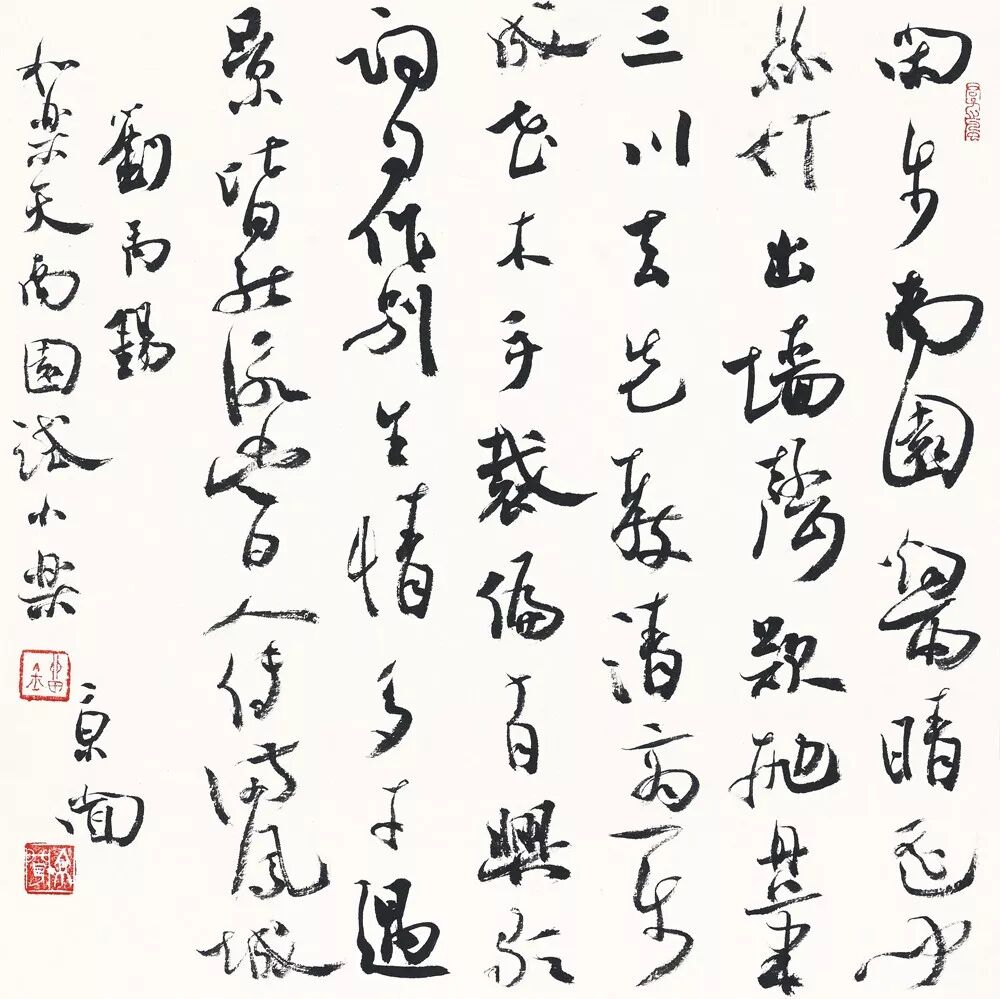 閑步南園烟雨晴遥闻
絲竹出墙聲欲抛丹筆
三川去先教清商一部
成花木手栽偏有興歌
詞自作别生情多才遇
景皆能詠當日人傳满鳳城
劉禹錫
和楽天南園試小楽